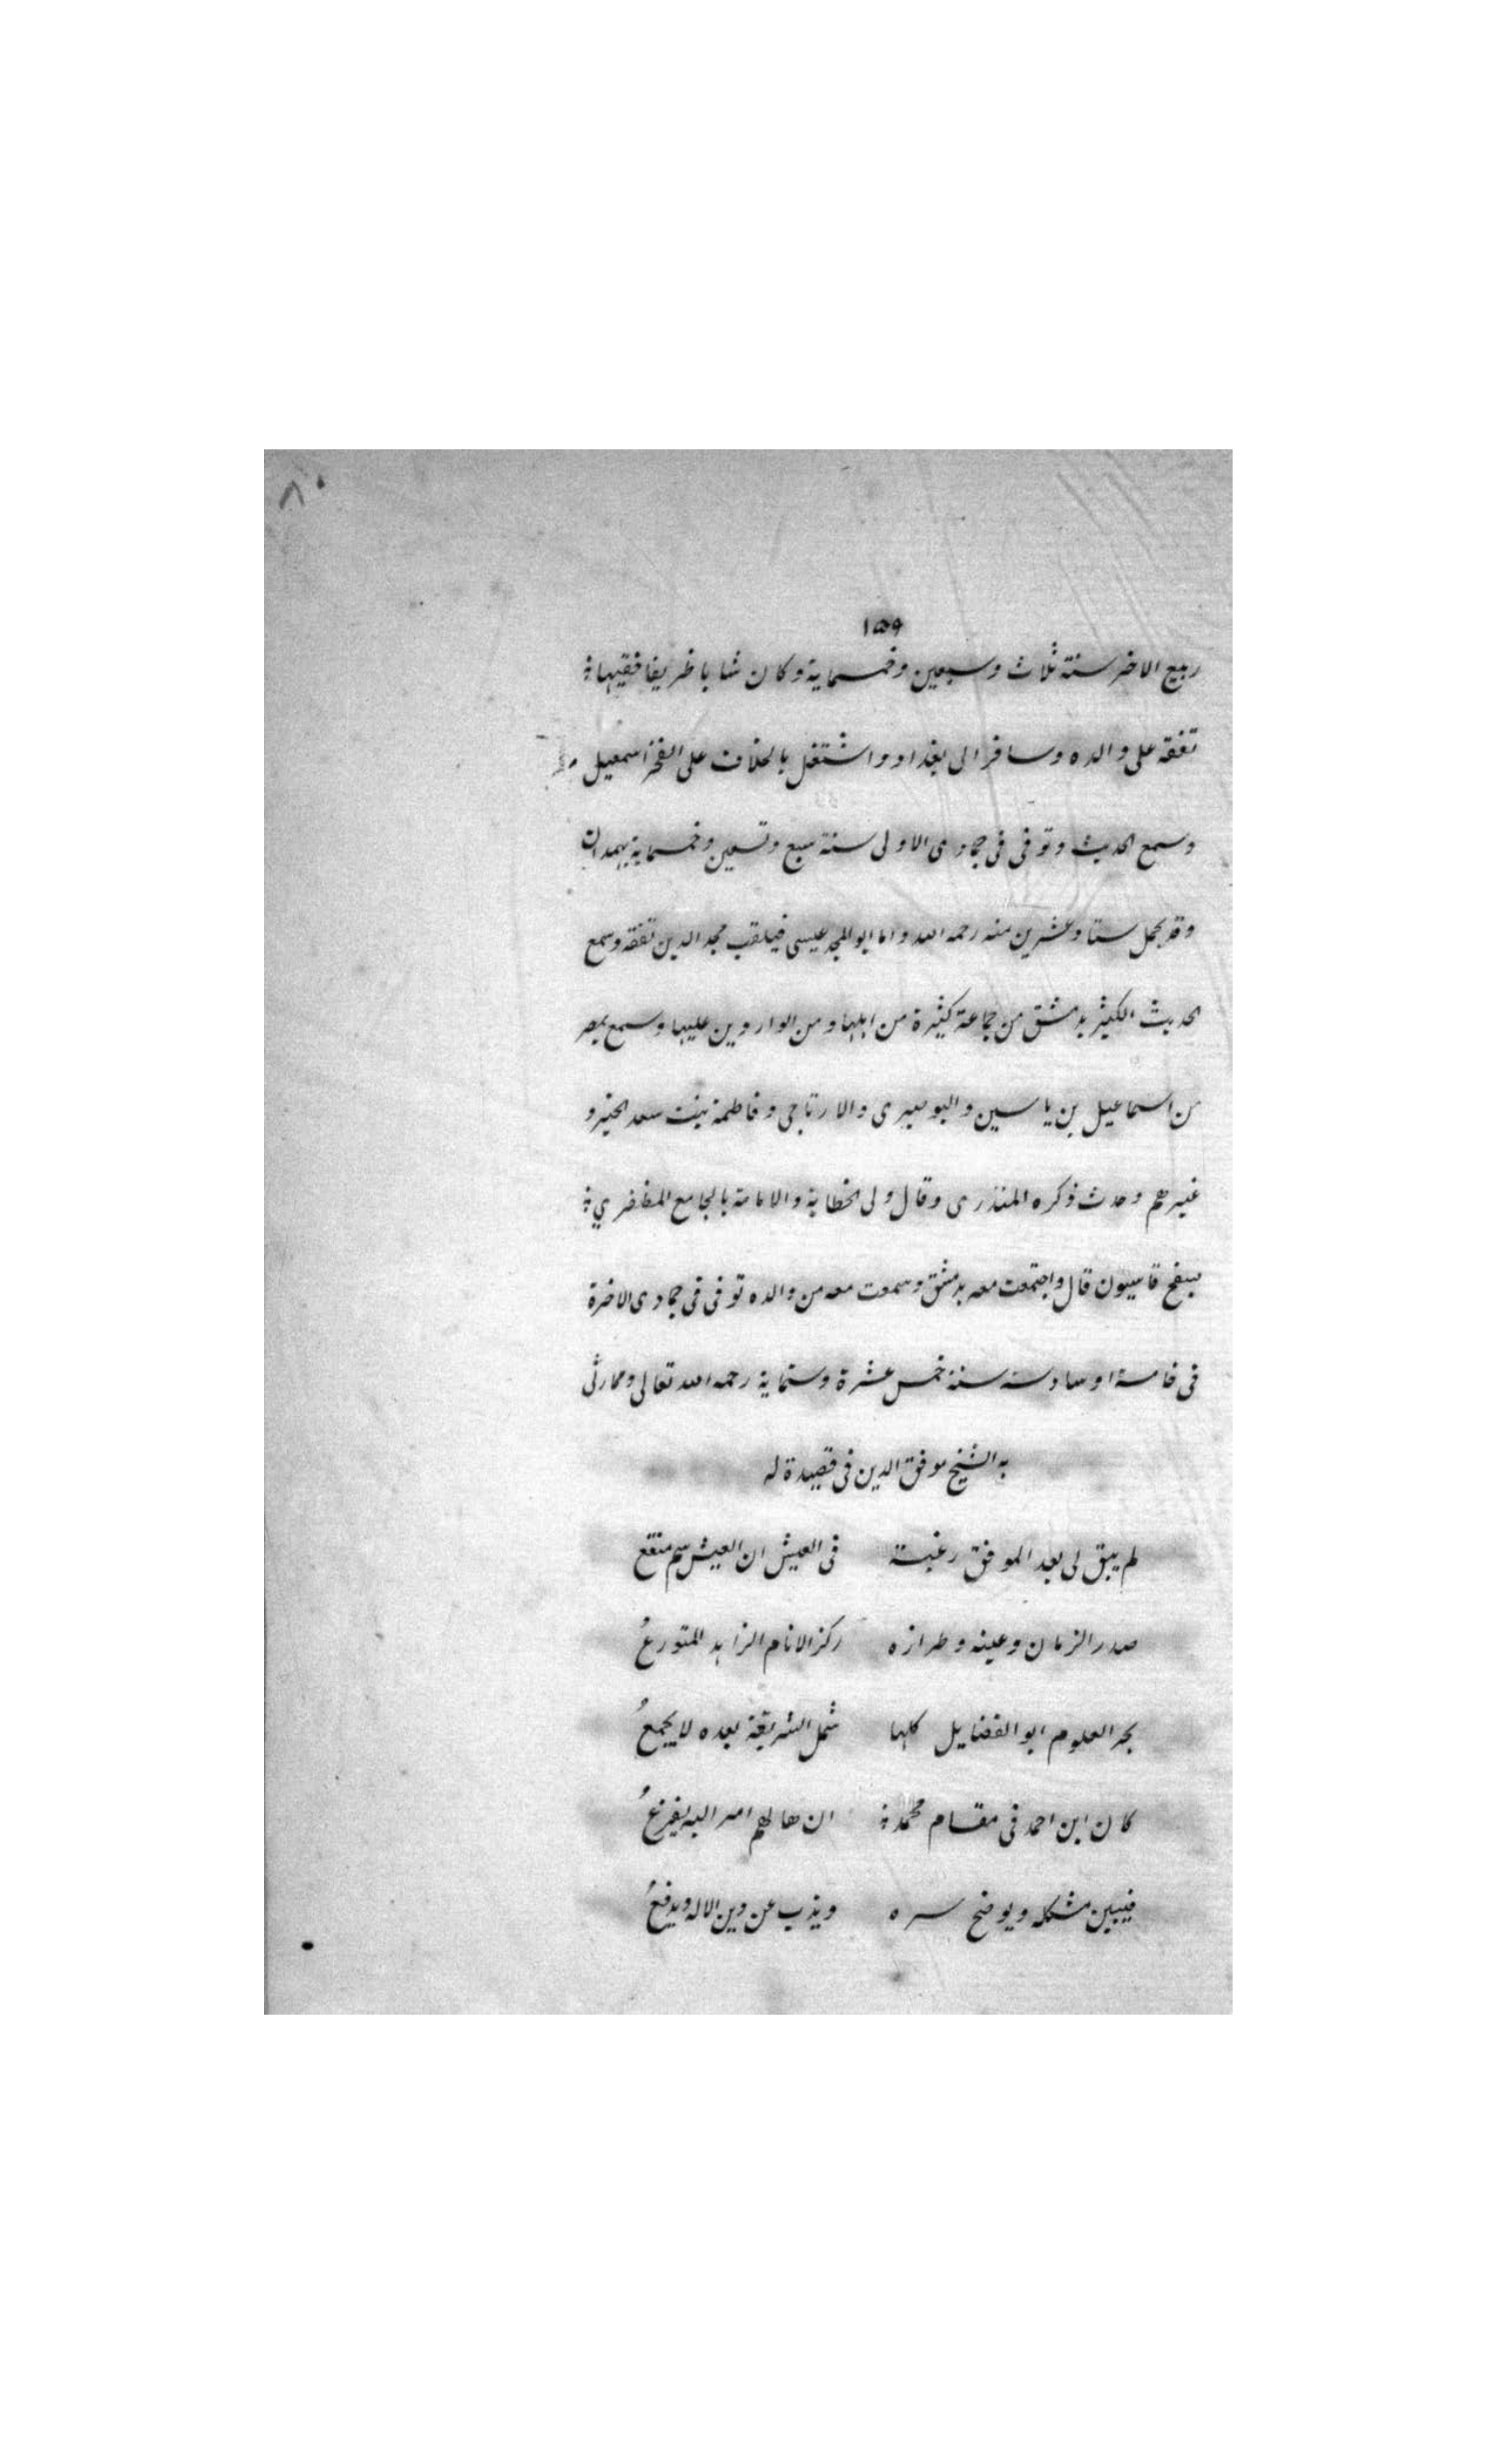 ٨٠
١٥٩
ربيع الاخر سنة ثلاث وسبعين وخمسماية وكان شابا ظريفا فقيها
تفقه على والده وسافر الى بغداد واشتغل بالخلاف على الفخر اسمعيل
وسمع الحديث وتوفى فى جمادى الاولى سنة سبع وتسعين وخمسماية بهمدان
وقد كمل ستا وعشرين سنه رحمه الله واما ابو المجد عيسى فيلقب مجد الدين تفقه وسمع
الحديث الكثير بدمشق من جماعة كثيرة من اهلها ومن الواردين عليها وسمع بمصر
من اسماعيل بن ياسين والبوصيرى والارتاحى وفاطمة بنت سعد الخير و
غيرهم وحدث ذكره المنذرى وقال ولى الخطابة والامامة بالجامع المظفري
بسفح قاسيون قال واجتمعت معه بدمشق وسمعت معه من والده توفى فى جمادى الاخرة
فى خامسة او سادسة سنة خمس عشرة وستماية رحمه الله تعالى ومما رثى
به الشيخ موفق الدين فى قصيدة له
لم يبق لى بعد الموفق رغبة فى العيش ان العيش سم منقع
صدر الزمان وعينه وطرازه ركز الانام الزاهد المتورعُ
بحر العلوم ابو الفضايل كلها شمل الشريعة بعده لا يجمعُ
كان ابن احمد فى مقام محمد ان هالهم امر اليه يفزعُ
فيبين مشكله ويوضح سره ويذب عن دين الاله ويدفعُ